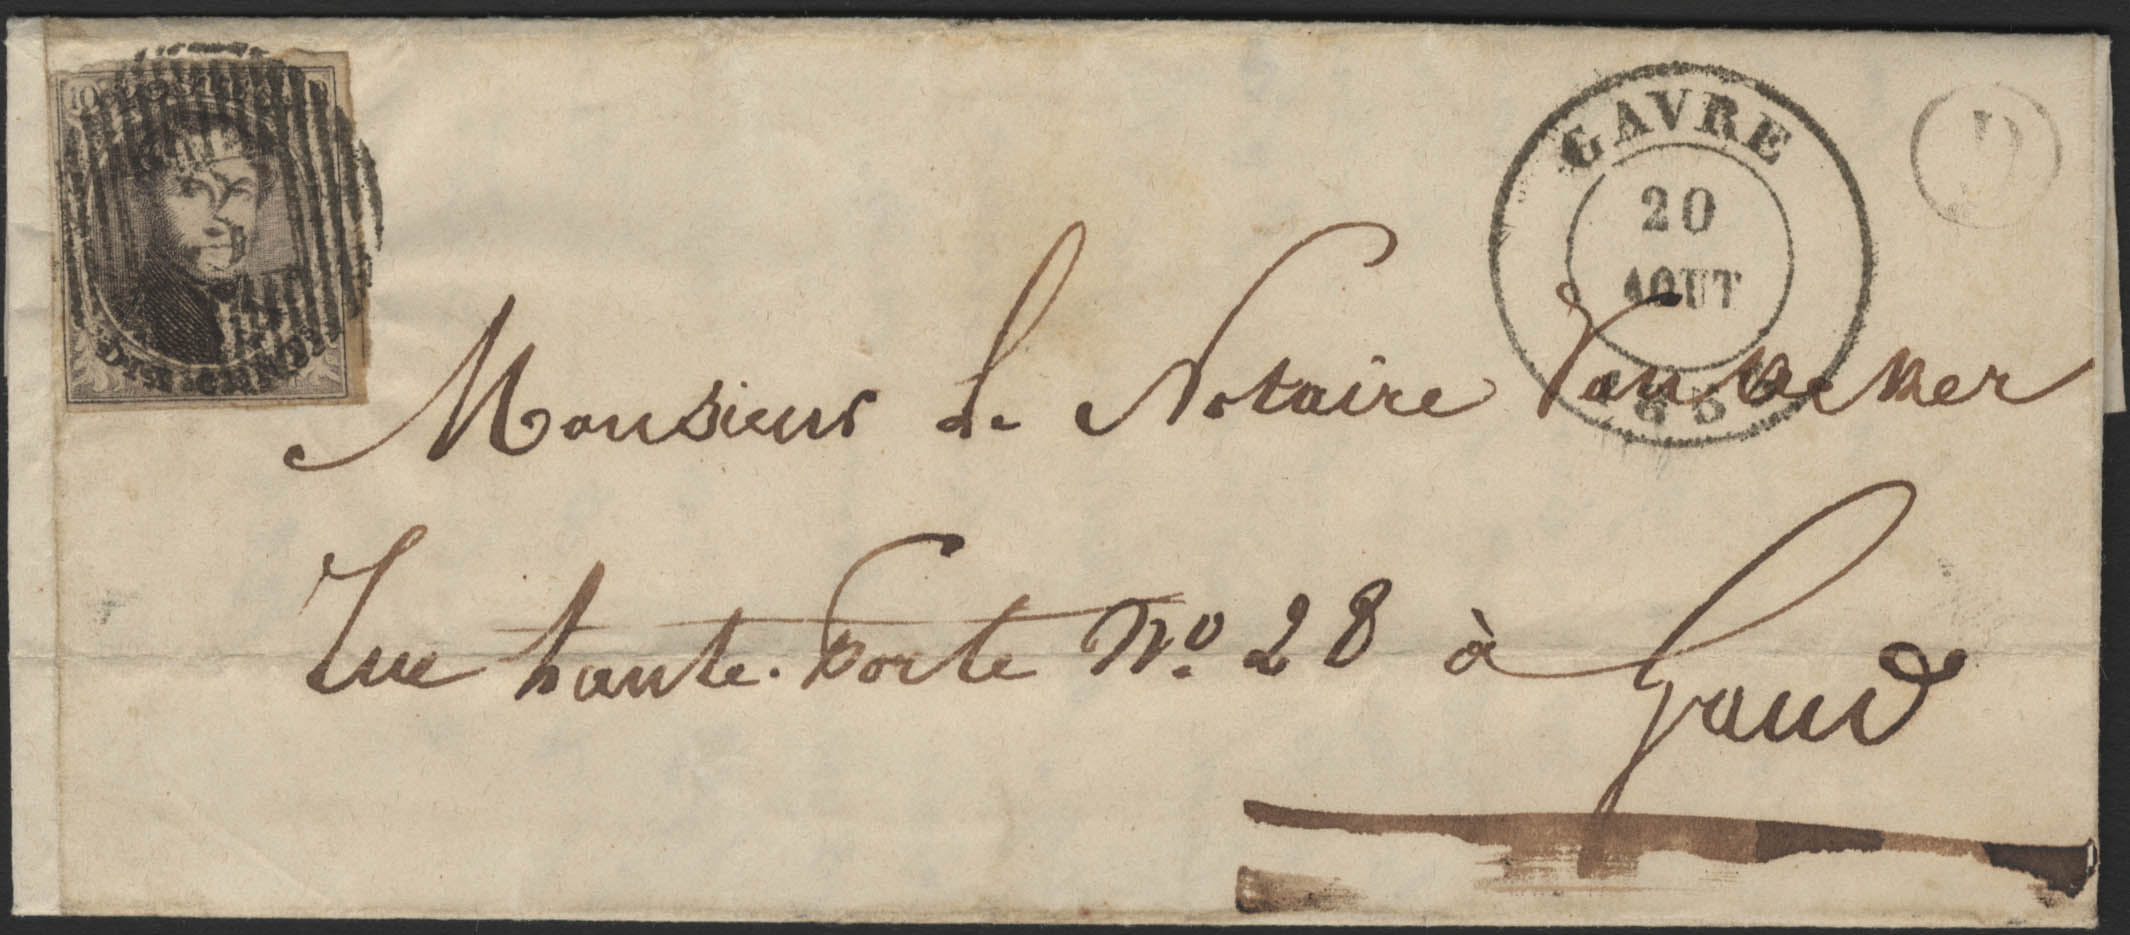 10 POSTES 10
DIX CENTS
GAVRE
20
AOUT
185
D
Monsieur Le Notaire
rue haute. Porte No. 28 à Gand